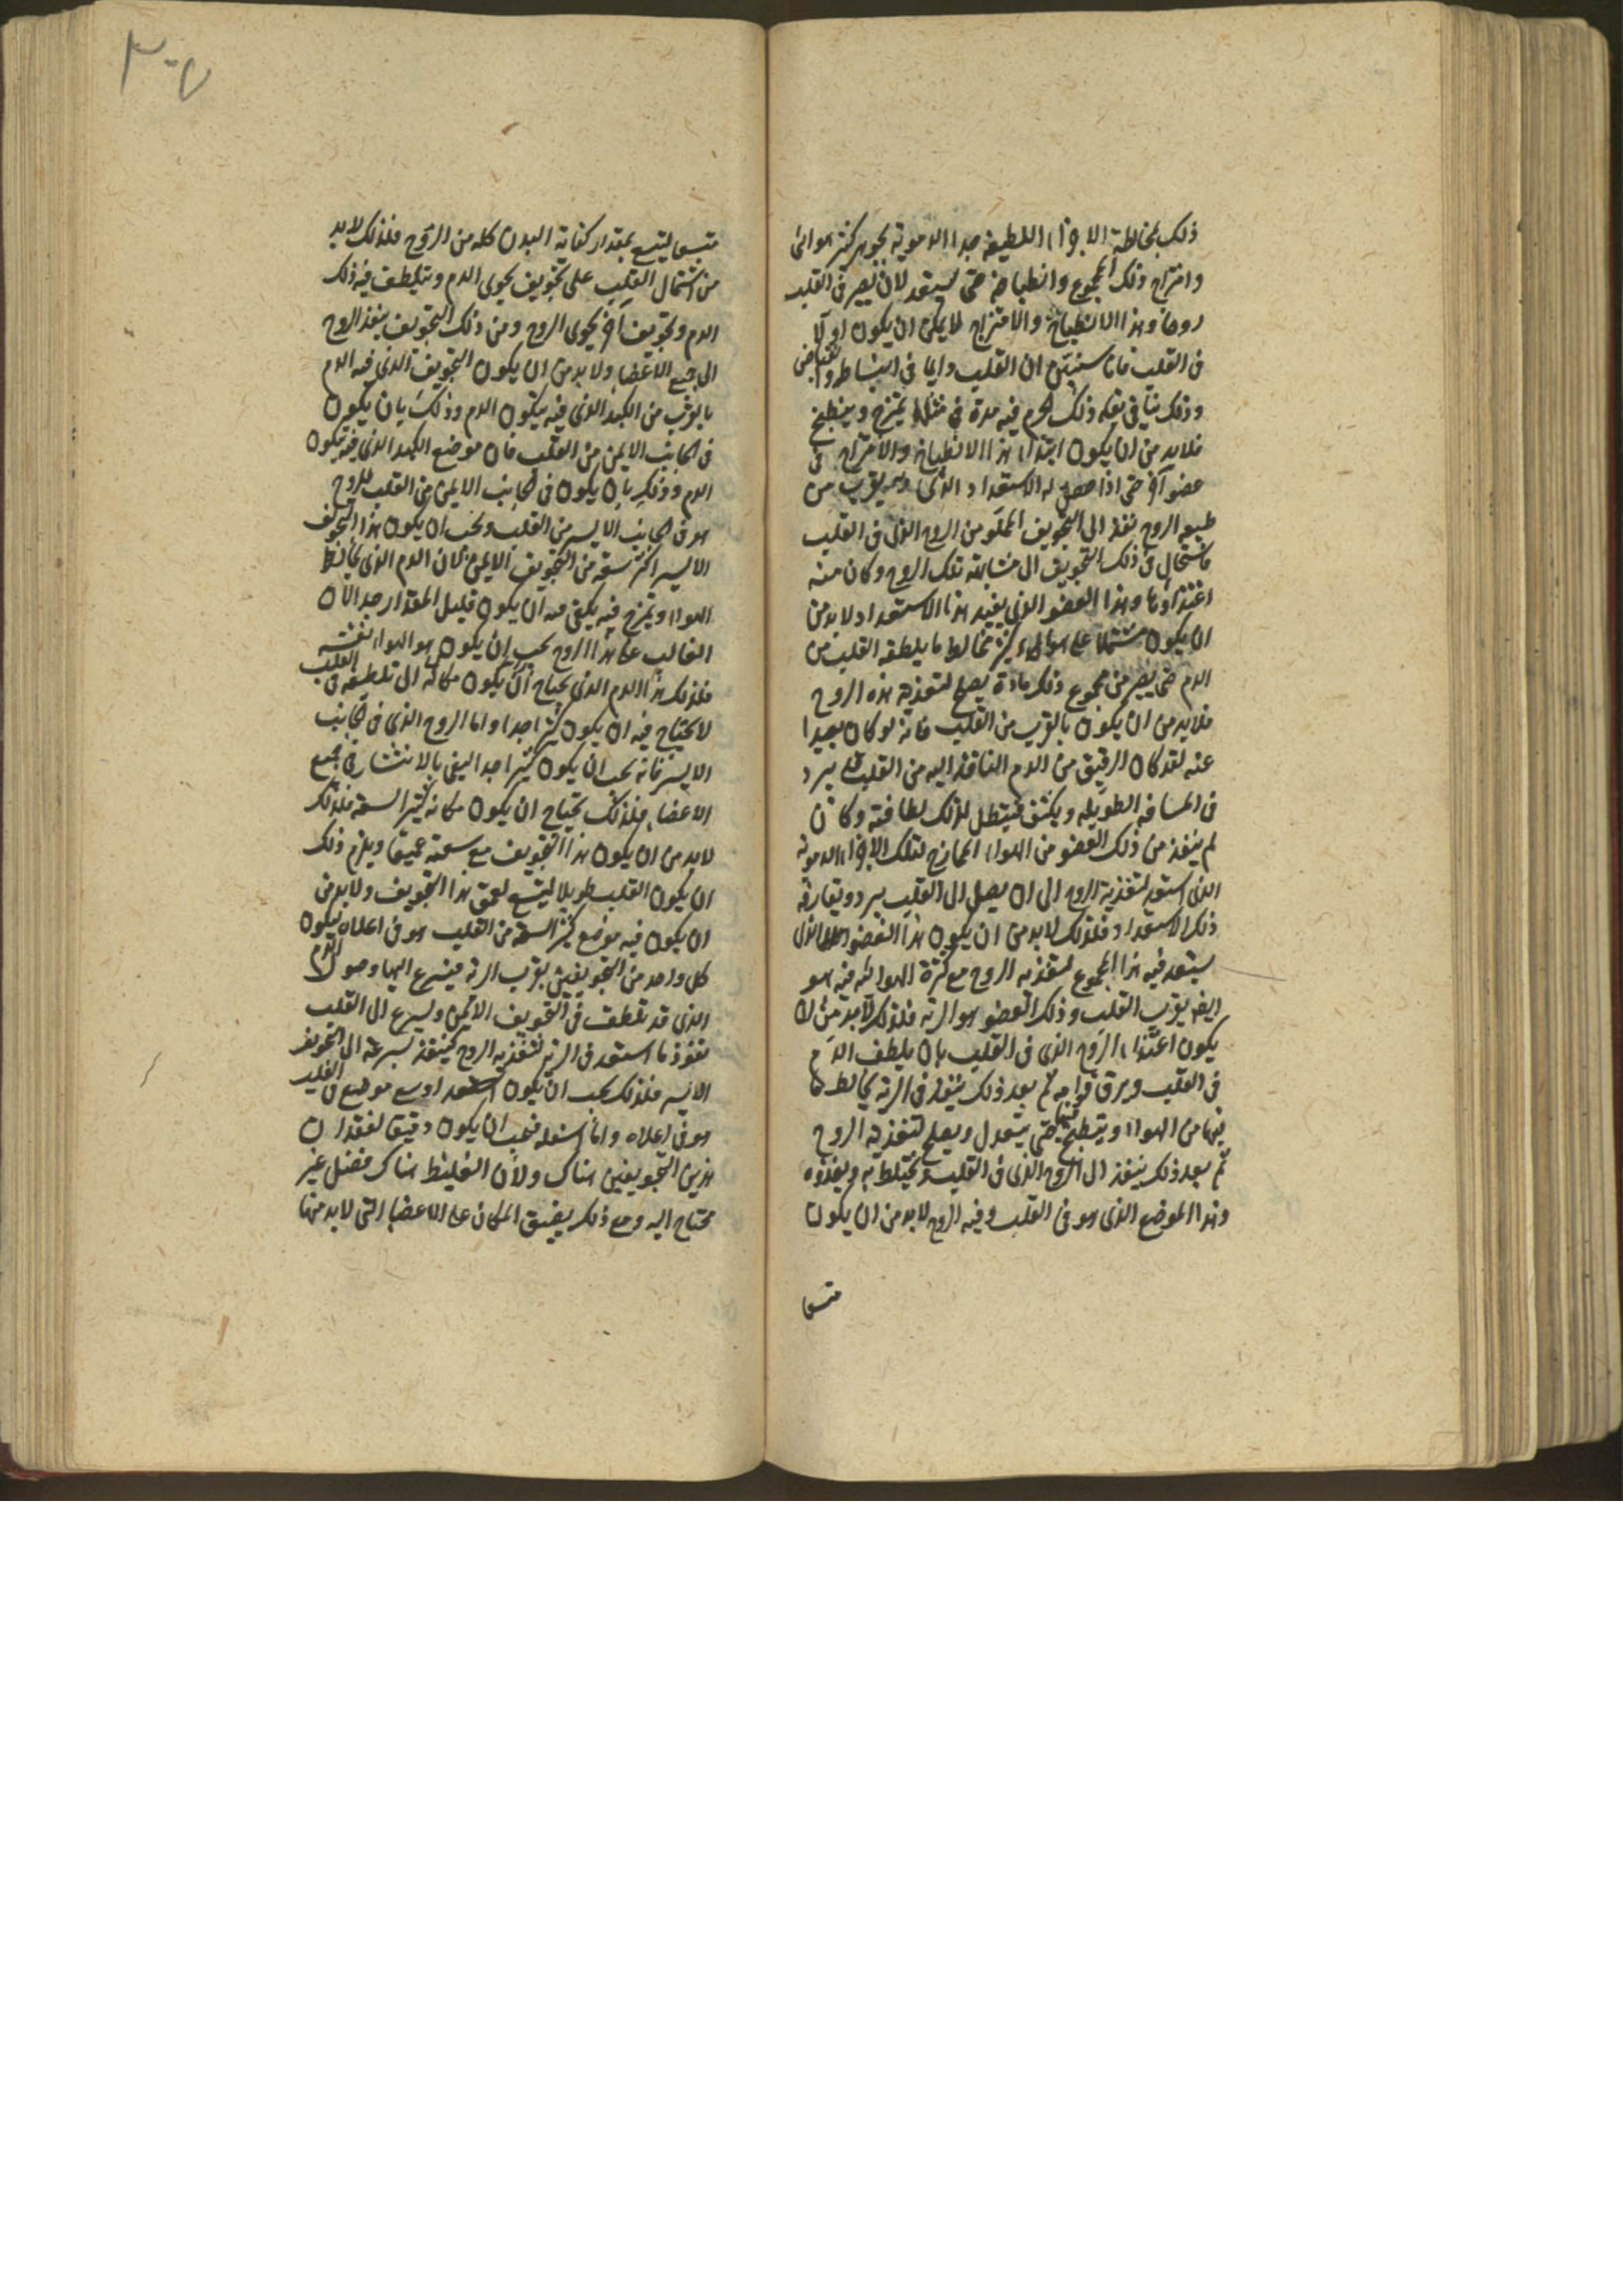 ذلك بمخالطة الاجزاء اللطيفة جدا الدموية بجوهر كثير هوائى
وامتزاج ذلك المجموع وانطباخه حتى يستعد لان يصير فى القلب
روحا وهذا الانطباخ والامتزاج لا يمكن ان يكون اولا
فى القلب فانا سنبين ان القلب دايما فى انبساط وانقباض
وذلك ينافى بقاء ذلك الجرم فيه مدة فى مثلها يمتزج وينطبخ
فلا بد من ان يكون ابتداء هذا الانطباخ والامتزاج فى
عضو آخر حتى اذا حصل له الاستعداد الذى به يقرب من
طبيعة الروح نفذ الى التجويف المملو من الروح الذى فى القلب
فاستحال فى ذلك التجويف الى مشابهة تلك الروح وكان منه
اغتذاؤها وهذا العضو الذى يفيد هذا الاستعداد لا بد من
ان يكون مشتملا على هواء كثير مخالط ما يلطفه القلب من
الدم حتى يصير من مجموع ذلك مادة يصلح لتغذية هذه الروح
فلا بد من ان يكون بالقرب من القلب فانه لو كان بعيدا
عنه لقد كان الرقيق من الدم النافذ اليه من القلب يبرد
فى المسافة الطويلة ويكثف فيبطل لذلك لطافته وكان
لم ينفذ من ذلك العضو من الهواء الممازج لتلك الاجزاء الدموية
الذى استعد لتغذية الروح الى ان يصل الى القلب يبرد ويفارقه
ذلك الاستعداد فلذلك لا بد من ان يكون هذا العضو الذى
يستعد فيه هذا المجموع لتغذية الروح مع كثرة الهوائية فيه هو
ايضا بقرب القلب وذلك العضو هو الرئة فلذلك لا بد من ان
يكون اغتذاء الروح الذى فى القلب بان يلطف الدم
فى القلب ويرق قوامه ثم بعد ذلك ينفذ فى الرئة يخالط ما
فيها من الهواء وينطبخ فيها حتى يتعدل ويصلح لتغذية الروح
ثم بعد ذلك ينفذ الى الروح الذى فى القلب ويختلط به ويغذوه
وهذا الموضع الذى هو فى القلب وفيه الروح لا بد من ان يكون
متسعا
٣٠٧
متسعا ليتسع بمقدار كفاية البدن كله من الروح فلذلك لا بد
من اشتمال القلب على تجويف يحوى الدم ويتلطف فيه ذلك
الدم وتجويف آخر يحوى الروح ومن ذلك التجويف ينفذ الروح
الى جميع الاعضاء ولا بد من ان يكون التجويف الذى فيه الدم
بالقرب من الكبد الذى فيه يتكون الدم وذلك بان يكون
فى الجانب الايمن من القلب فان موضع الكبد الذى فيه يتكون
الدم وذلك بان يكون فى الجانب الايمن من القلب للروح
هو فى الجانب الايسر من القلب ويجب ان يكون هذا التجويف
الايسر اكثر سعة من التجويف الايمن لان الدم الذى يخالط
الهواء ويمتزج فيه يكفى فيه ان يكون قليل المقدار جدا لان
الغالب على هذا الروح يجب ان يكون هو الهواء نفسه
فلذلك هذا الدم الذى يحتاج ان يكون مكانه الى تلطيفه فى القلب
لا يحتاج فيه ان يكون كثيرا جدا واما الروح الذى فى الجانب
الايسر فانه يجب ان يكون كثيرا جدا ليفى بالانتشار فى جميع
الاعضاء فلذلك يحتاج ان يكون مكانه كثير السعة فلذلك
لا بد من ان يكون هذا التجويف مع سعته عميقا ويلزم ذلك
ان يكون القلب طويلا ليتسع لعمق هذا التجويف ولا بد من
ان يكون فيه موضع كثير السعة من القلب هو فى اعلاه ليكون
كل واحد من التجويفين بقرب الرئة فيسرع اليها وصول الدم
الذى قد تلطف فى التجويف الايمن ويسرع الى القلب
نفوذ ما استعد فى الرئة لتغذية الروح فينفذ بسرعة الى التجويف
الايسر فلذلك يجب ان يكون اوسع موضع فى القلب
هو فى اعلاه واما اسفله فيجب ان يكون دقيقا لفقدان
هذين التجويفين هناك ولان الغليظ هناك فضل غير
محتاج اليه ومع ذلك يضيق المكان على الاعضاء التى لا بد منها